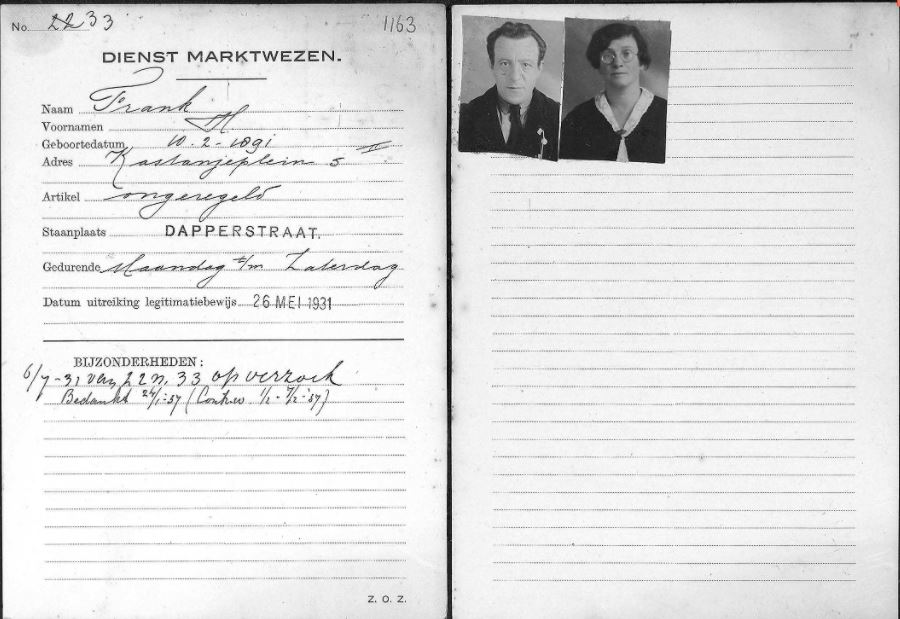 No. 22 33 1163
DIENST MARKTWEZEN.
Naam Frank
Voornamen H
Geboortedatum 10-2-1891
Adres Kastanjeplein 5 II
Artikel ongeregeld
Staanplaats DAPPERSTRAAT.
Gedurende Maandag t/m Zaterdag
Datum uitreiking legitimatiebewijs 26 MEI 1931
BIJZONDERHEDEN:
6/7-31 van 22 n. 33 op verzoek
Bedankt 24/1-'37 (
Z. O. Z.